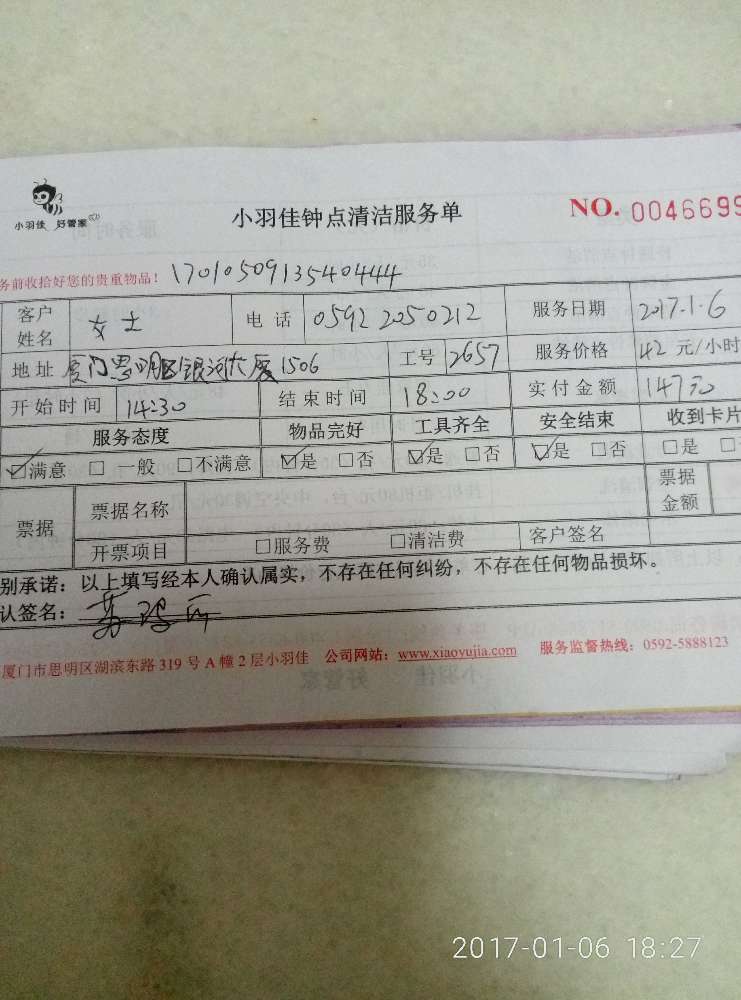 小羽佳 好管家
小羽佳钟点清洁服务单
NO. 0046699
务前收拾好您的贵重物品! 1701050913540444
客户姓名 女士 电话 0592 2050212 服务日期 2017.1.6
地址 厦门思明区银河大厦1506 工号 2657 服务价格 42 元/小时
开始时间 14:30 结束时间 18:00 实付金额 147元
服务态度 物品完好 工具齐全 安全结束 收到卡片
☑满意 □一般 □不满意 ☑是 □否 ☑是 □否 ☑是 □否 □是 □
票据 票据名称 票据金额
开票项目 □服务费 □清洁费 客户签名
别承诺：以上填写经本人确认属实，不存在任何纠纷，不存在任何物品损坏。
认签名：
厦门市思明区湖滨东路 319 号 A 幢 2 层小羽佳 公司网站：www.xiaoyujia.com 服务监督热线：0592-5888123
2017-01-06 18:27